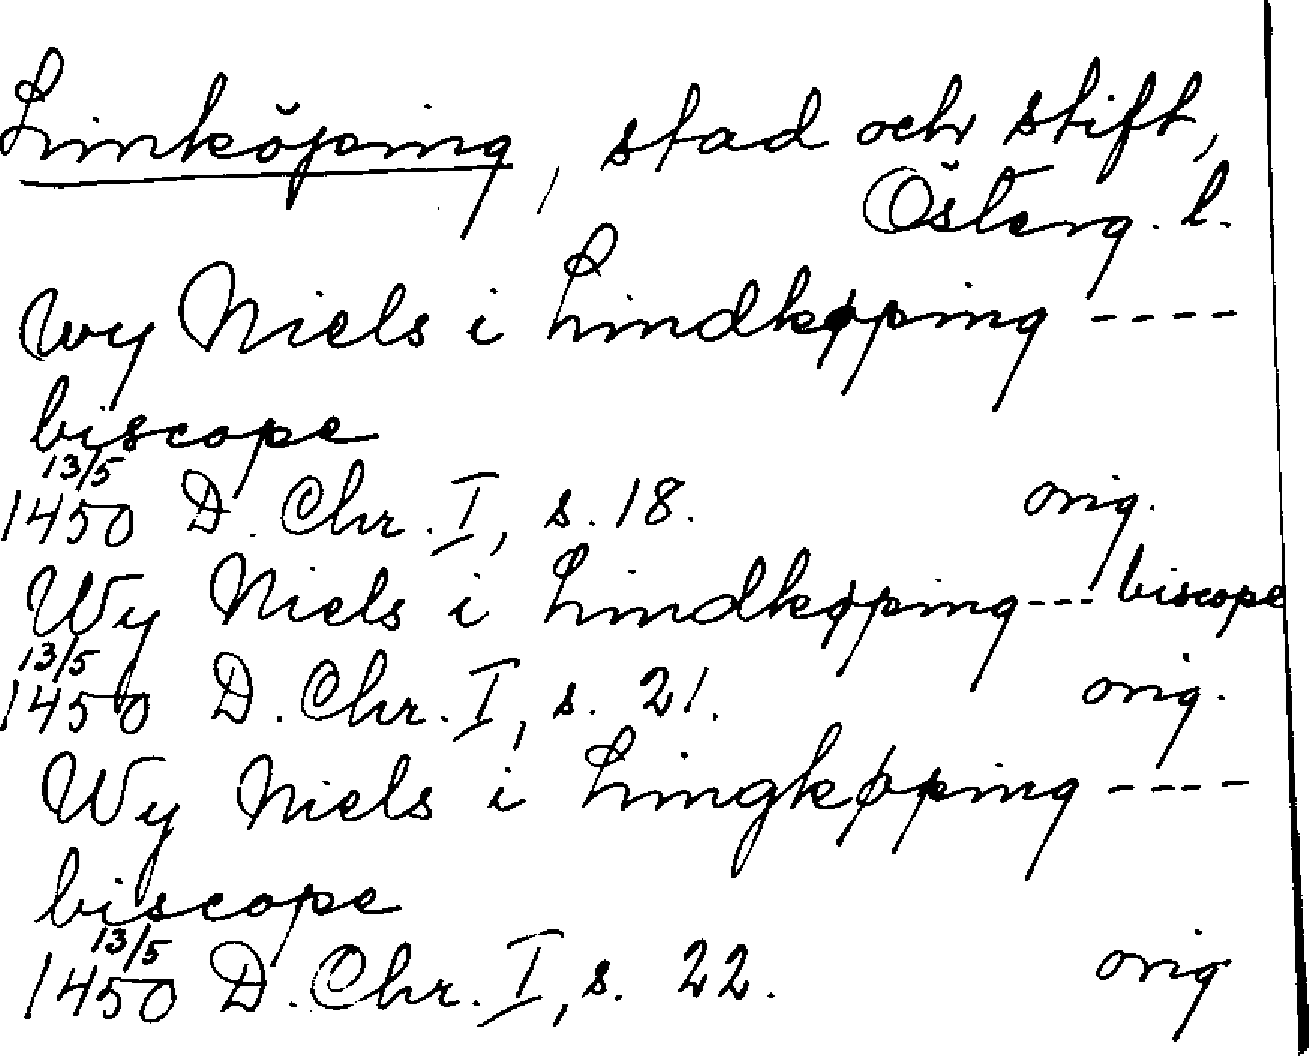 Linköping, stad och stift,
Österg. l.
Wy Niels i Lindkøping ----
biscope
13/5
1450 D. Chr. I, s. 18. orig.
Wy Niels i Lindkøping --- biscope
13/5
1450 D. Chr. I, s. 21. orig.
Wy Niels i Lingkøping ----
biscope
13/5
1450 D. Chr. I, s. 22. orig